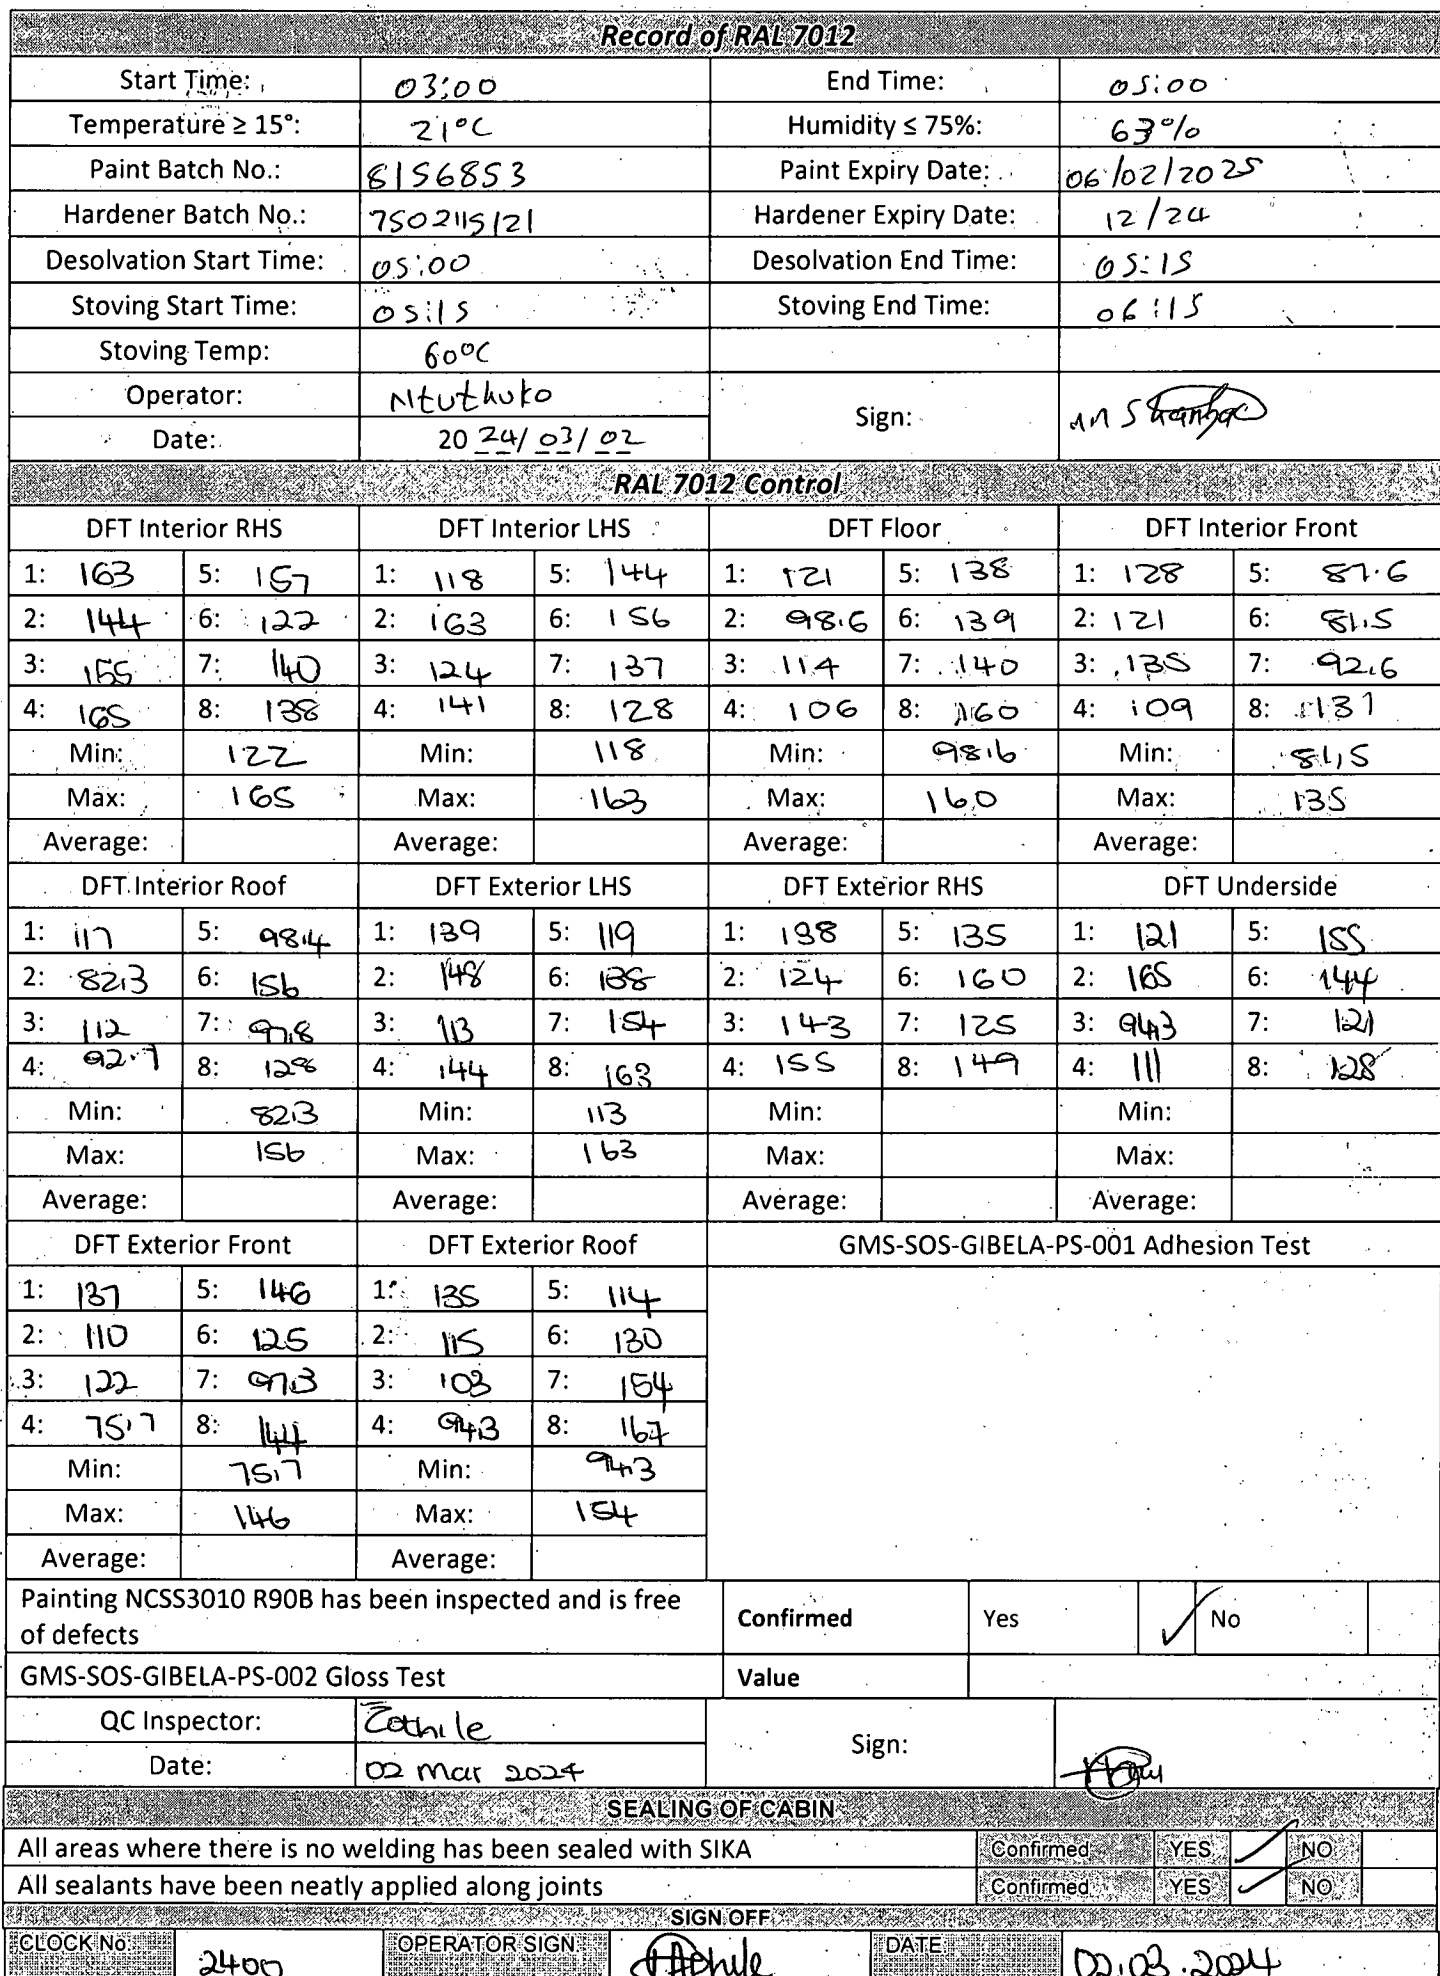 Record of RAL 7012
Start Time: 03:00 End Time: 05:00
Temperature ≥ 15°: 21°C Humidity ≤ 75%: 63%
Paint Batch No.: 8156853 Paint Expiry Date: 06/02/2025
Hardener Batch No.: 7502115121 Hardener Expiry Date: 12/24
Desolvation Start Time: 05:00 Desolvation End Time: 05:15
Stoving Start Time: 05:15 Stoving End Time: 06:15
Stoving Temp: 60°C
Operator: Ntuthuko Sign:
Date: 2024/03/02
RAL 7012 Control
DFT Interior RHS DFT Interior LHS DFT Floor DFT Interior Front
1: 163 5: 157 1: 118 5: 144 1: 121 5: 138 1: 128 5: 87.6
2: 144 6: 122 2: 163 6: 156 2: 98.6 6: 139 2: 121 6: 81.5
3: 155 7: 140 3: 124 7: 137 3: 114 7: 140 3: 135 7: 92.6
4: 165 8: 138 4: 141 8: 128 4: 106 8: 160 4: 109 8: 131
Min: 122 Min: 118 Min: 98.6 Min: 81.5
Max: 165 Max: 163 Max: 160 Max: 135
Average: Average: Average: Average:
DFT Interior Roof DFT Exterior LHS DFT Exterior RHS DFT Underside
1: 117 5: 98.4 1: 139 5: 119 1: 138 5: 135 1: 121 5: 155
2: 82.3 6: 156 2: 148 6: 138 2: 124 6: 160 2: 165 6: 144
3: 112 7: 97.8 3: 113 7: 154 3: 143 7: 125 3: 94.3 7: 121
4: 92.7 8: 128 4: 144 8: 163 4: 155 8: 149 4: 111 8: 128
Min: 82.3 Min: 113 Min: Min:
Max: 156 Max: 163 Max: Max:
Average: Average: Average: Average:
DFT Exterior Front DFT Exterior Roof GMS-SOS-GIBELA-PS-001 Adhesion Test
1: 137 5: 146 1: 135 5: 114
2: 110 6: 125 2: 115 6: 130
3: 122 7: 97.3 3: 103 7: 154
4: 75.7 8: 144 4: 94.3 8: 167
Min: 75.7 Min: 94.3
Max: 146 Max: 154
Average: Average:
Painting NCSS3010 R90B has been inspected and is free
of defects Confirmed Yes ✓ No
GMS-SOS-GIBELA-PS-002 Gloss Test Value
QC Inspector: Zothile Sign:
Date: 02 Mar 2024
SEALING OF CABIN
All areas where there is no welding has been sealed with SIKA Confirmed YES ✓ NO
All sealants have been neatly applied along joints Confirmed YES ✓ NO
SIGN OFF
CLOCK No. 2400 OPERATOR SIGN. DATE 02.03.2024